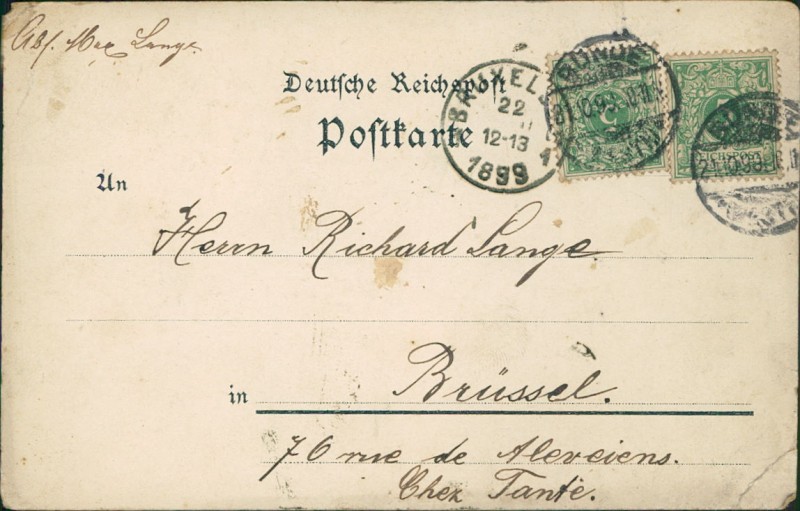 Abs. Max Lange.
Deutsche Reichspost
Postkarte
BRUXELLES
22
12-13
1899
BÜNDE
REICHSPOST
An
Herrn Richard Lange.
in Brüssel.
76 rue de
Chez Tante.